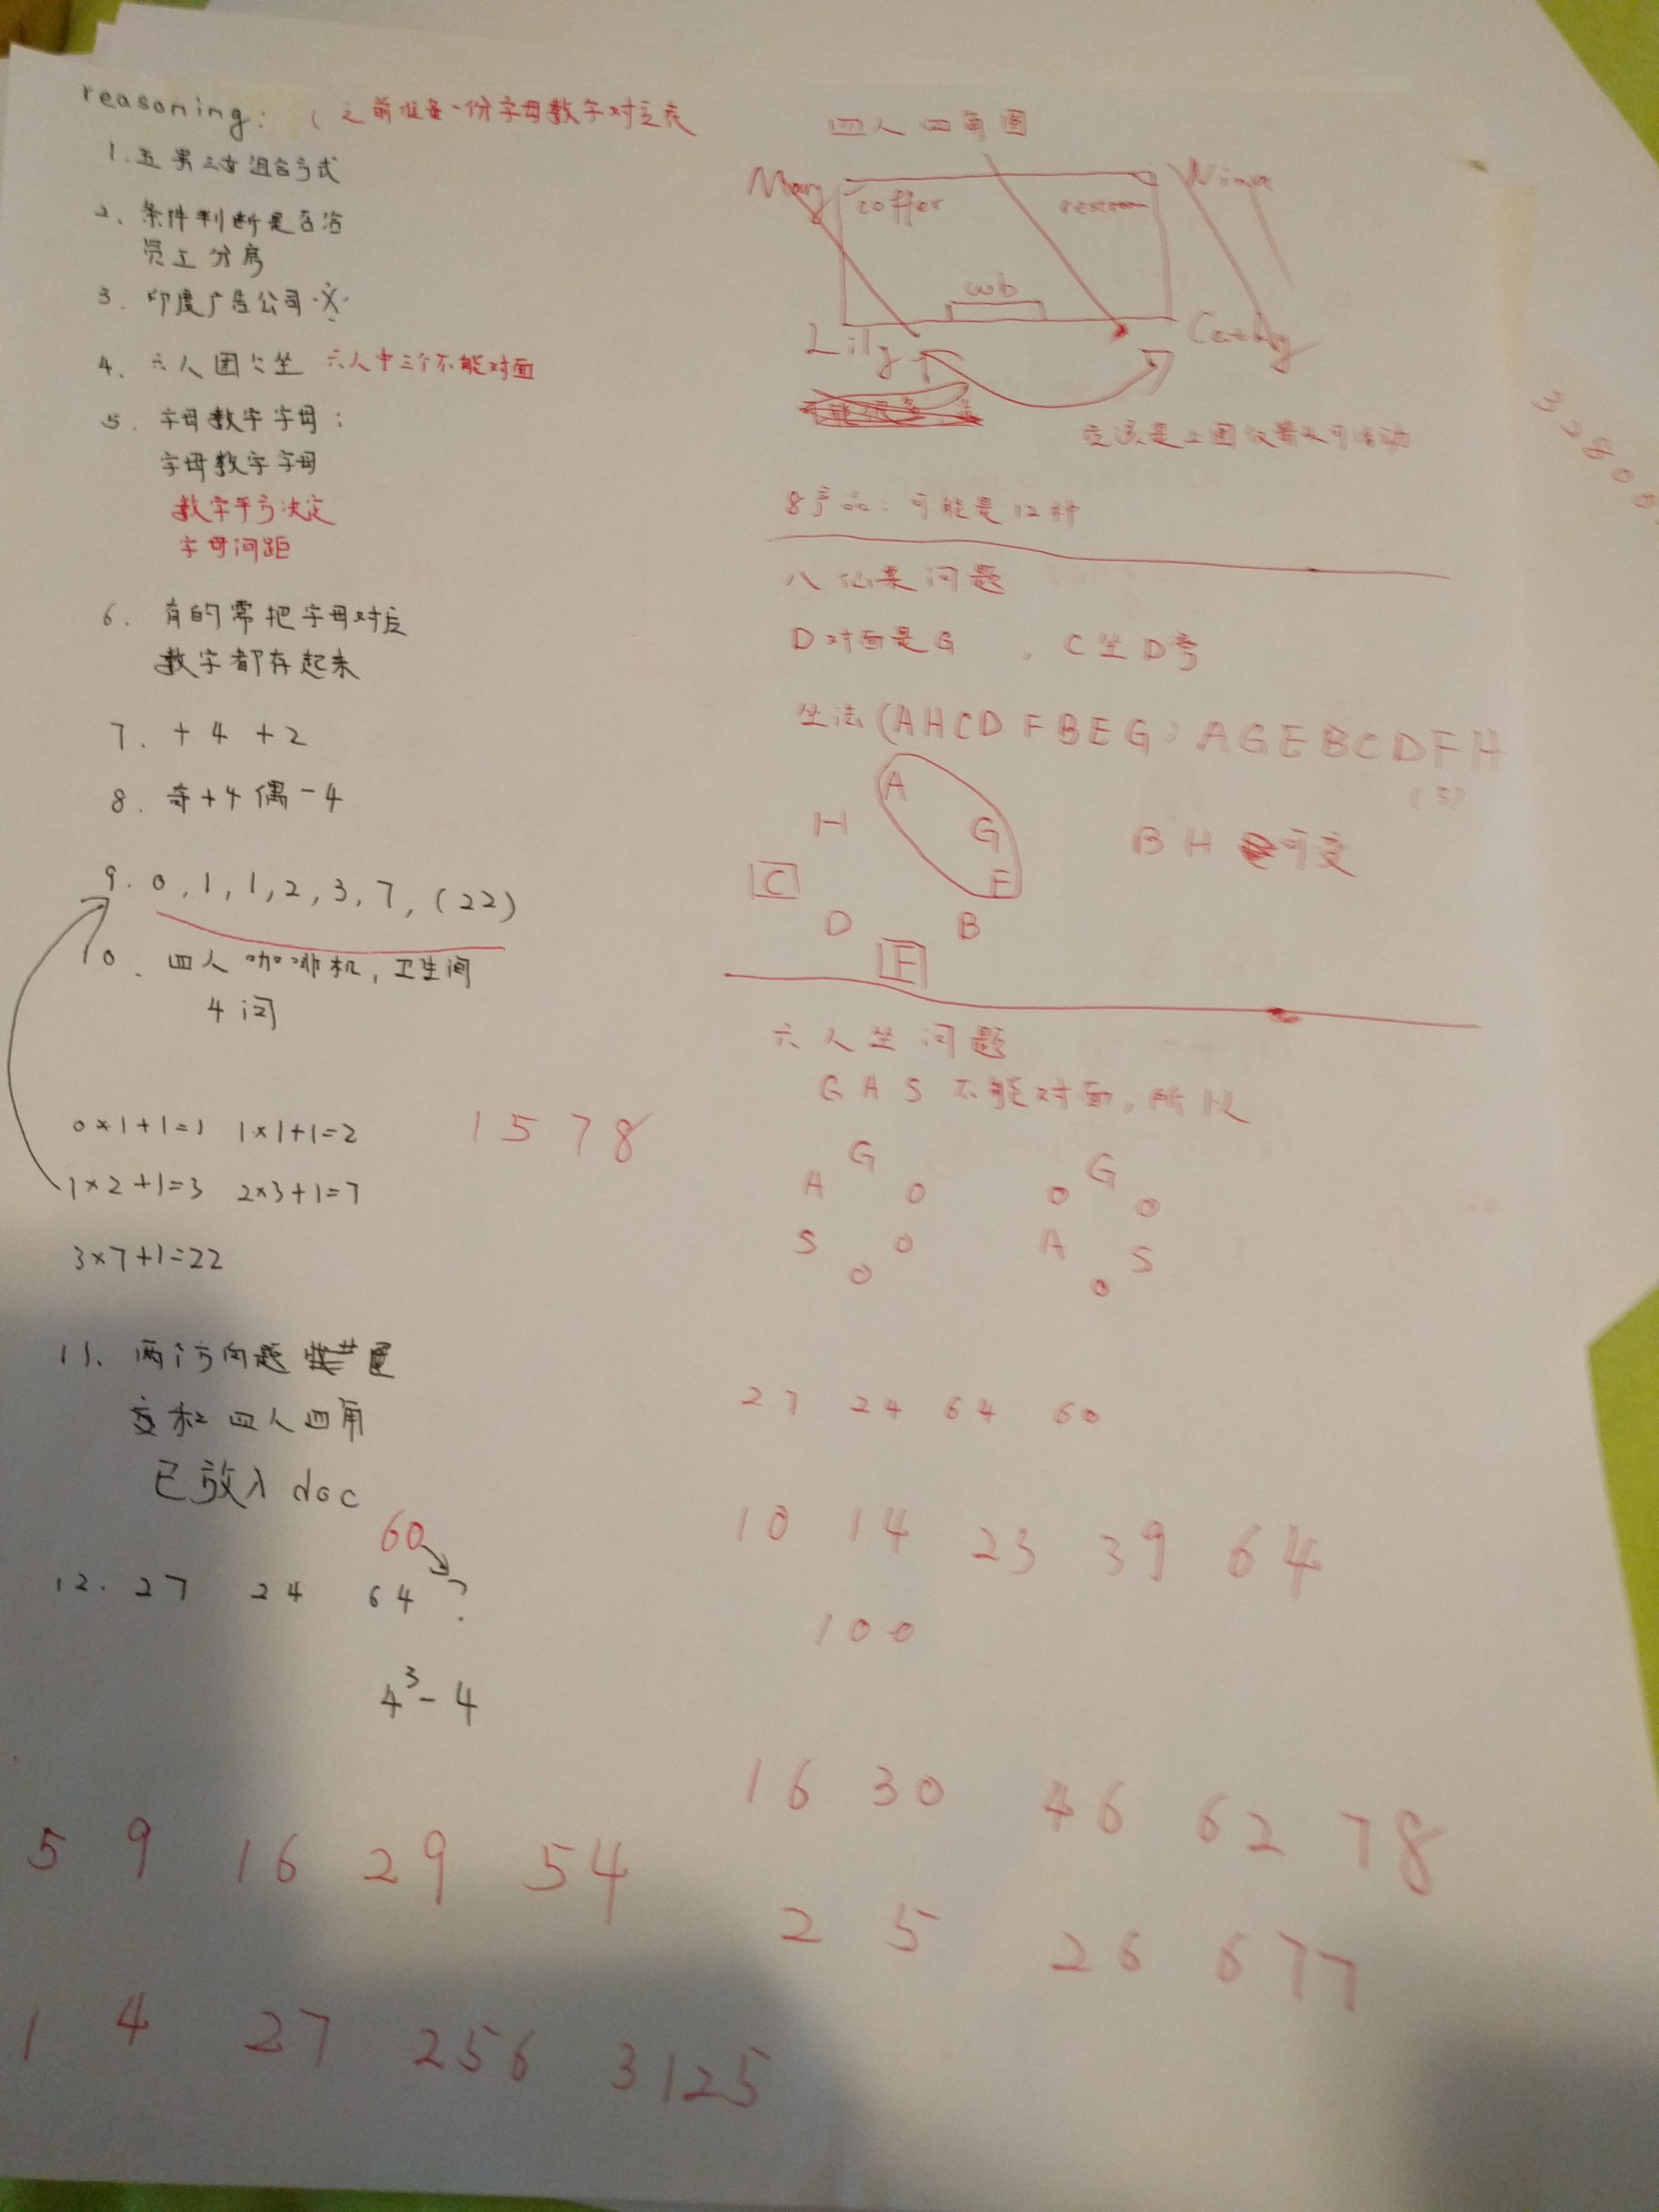 reasoning: (之前准备一份字母数字对应表
1. 五男三女组合方式
2、条件判断是否给
员工分房
3. 印度广告公司
4、六人团团坐 六人中三个不能对面
5. 字母数字字母:
字母数字字母
数字平方决定
字母间距
6. 有的需把字母对应
数字都存起来
7. +4 +2
8. 奇+4 偶-4
9. 0,1,1,2,3,7,(22)
10、四人咖啡机,卫生间
4问
0×1+1=1 1×1+1=2
1×2+1=3 2×3+1=7
3×7+1=22
1 5 7 8
11、两个方向题
四人四角
已放入doc
60
12. 27 24 64 ?
4³-4
5 9 16 29 54
1 4 27 256 3125
四人四角图
Mary coffer Nina
wb
Lily Cathy
应该是上图仅箭头可活动
8产品:可能是12种
八仙桌问题
D对面是G,C坐D旁
坐法(AHCDFBEG) AGEBCDFH
(3)
A
H G
C E
D B
F
BH 可变
六人坐问题
G A S 不能对面,所以
G G
A O O O
S O A S
O O
27 24 64 60
10 14 23 39 64
100
16 30 46 62 78
2 5 26 677